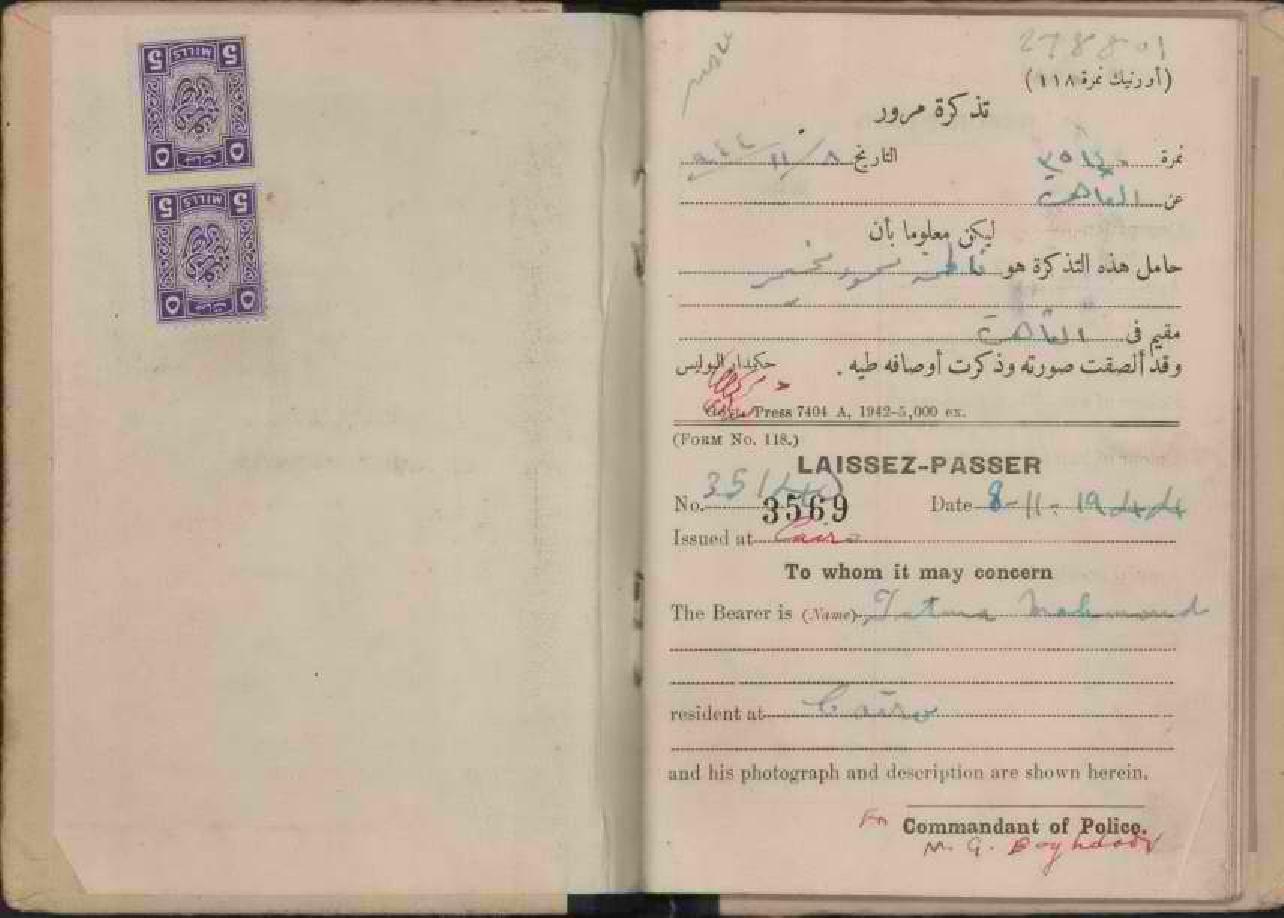 5 MILLS 5
5 MILLS 5
278801
(أورنيك نمرة ١١٨)
تذكرة مرور
نمرة ٣٥١٤٠ التاريخ ٨/١١/٩٤٤
عن القاهرة
ليكن معلوما بأن
حامل هذه التذكرة هو فاطمة محمود
مقيم فى القاهرة
وقد ألصقت صورته وذكرت أوصافه طيه .
حكيدار البوليس
Press 7404 A, 1942-5,000 ex.
(FORM No. 118.)
LAISSEZ-PASSER
No. 35140 3569 Date 8-11-1944
Issued at Cairo
To whom it may concern
The Bearer is (Name) Fatma Mahmoud
resident at Cairo
and his photograph and description are shown herein.
For Commandant of Police.
M. G.